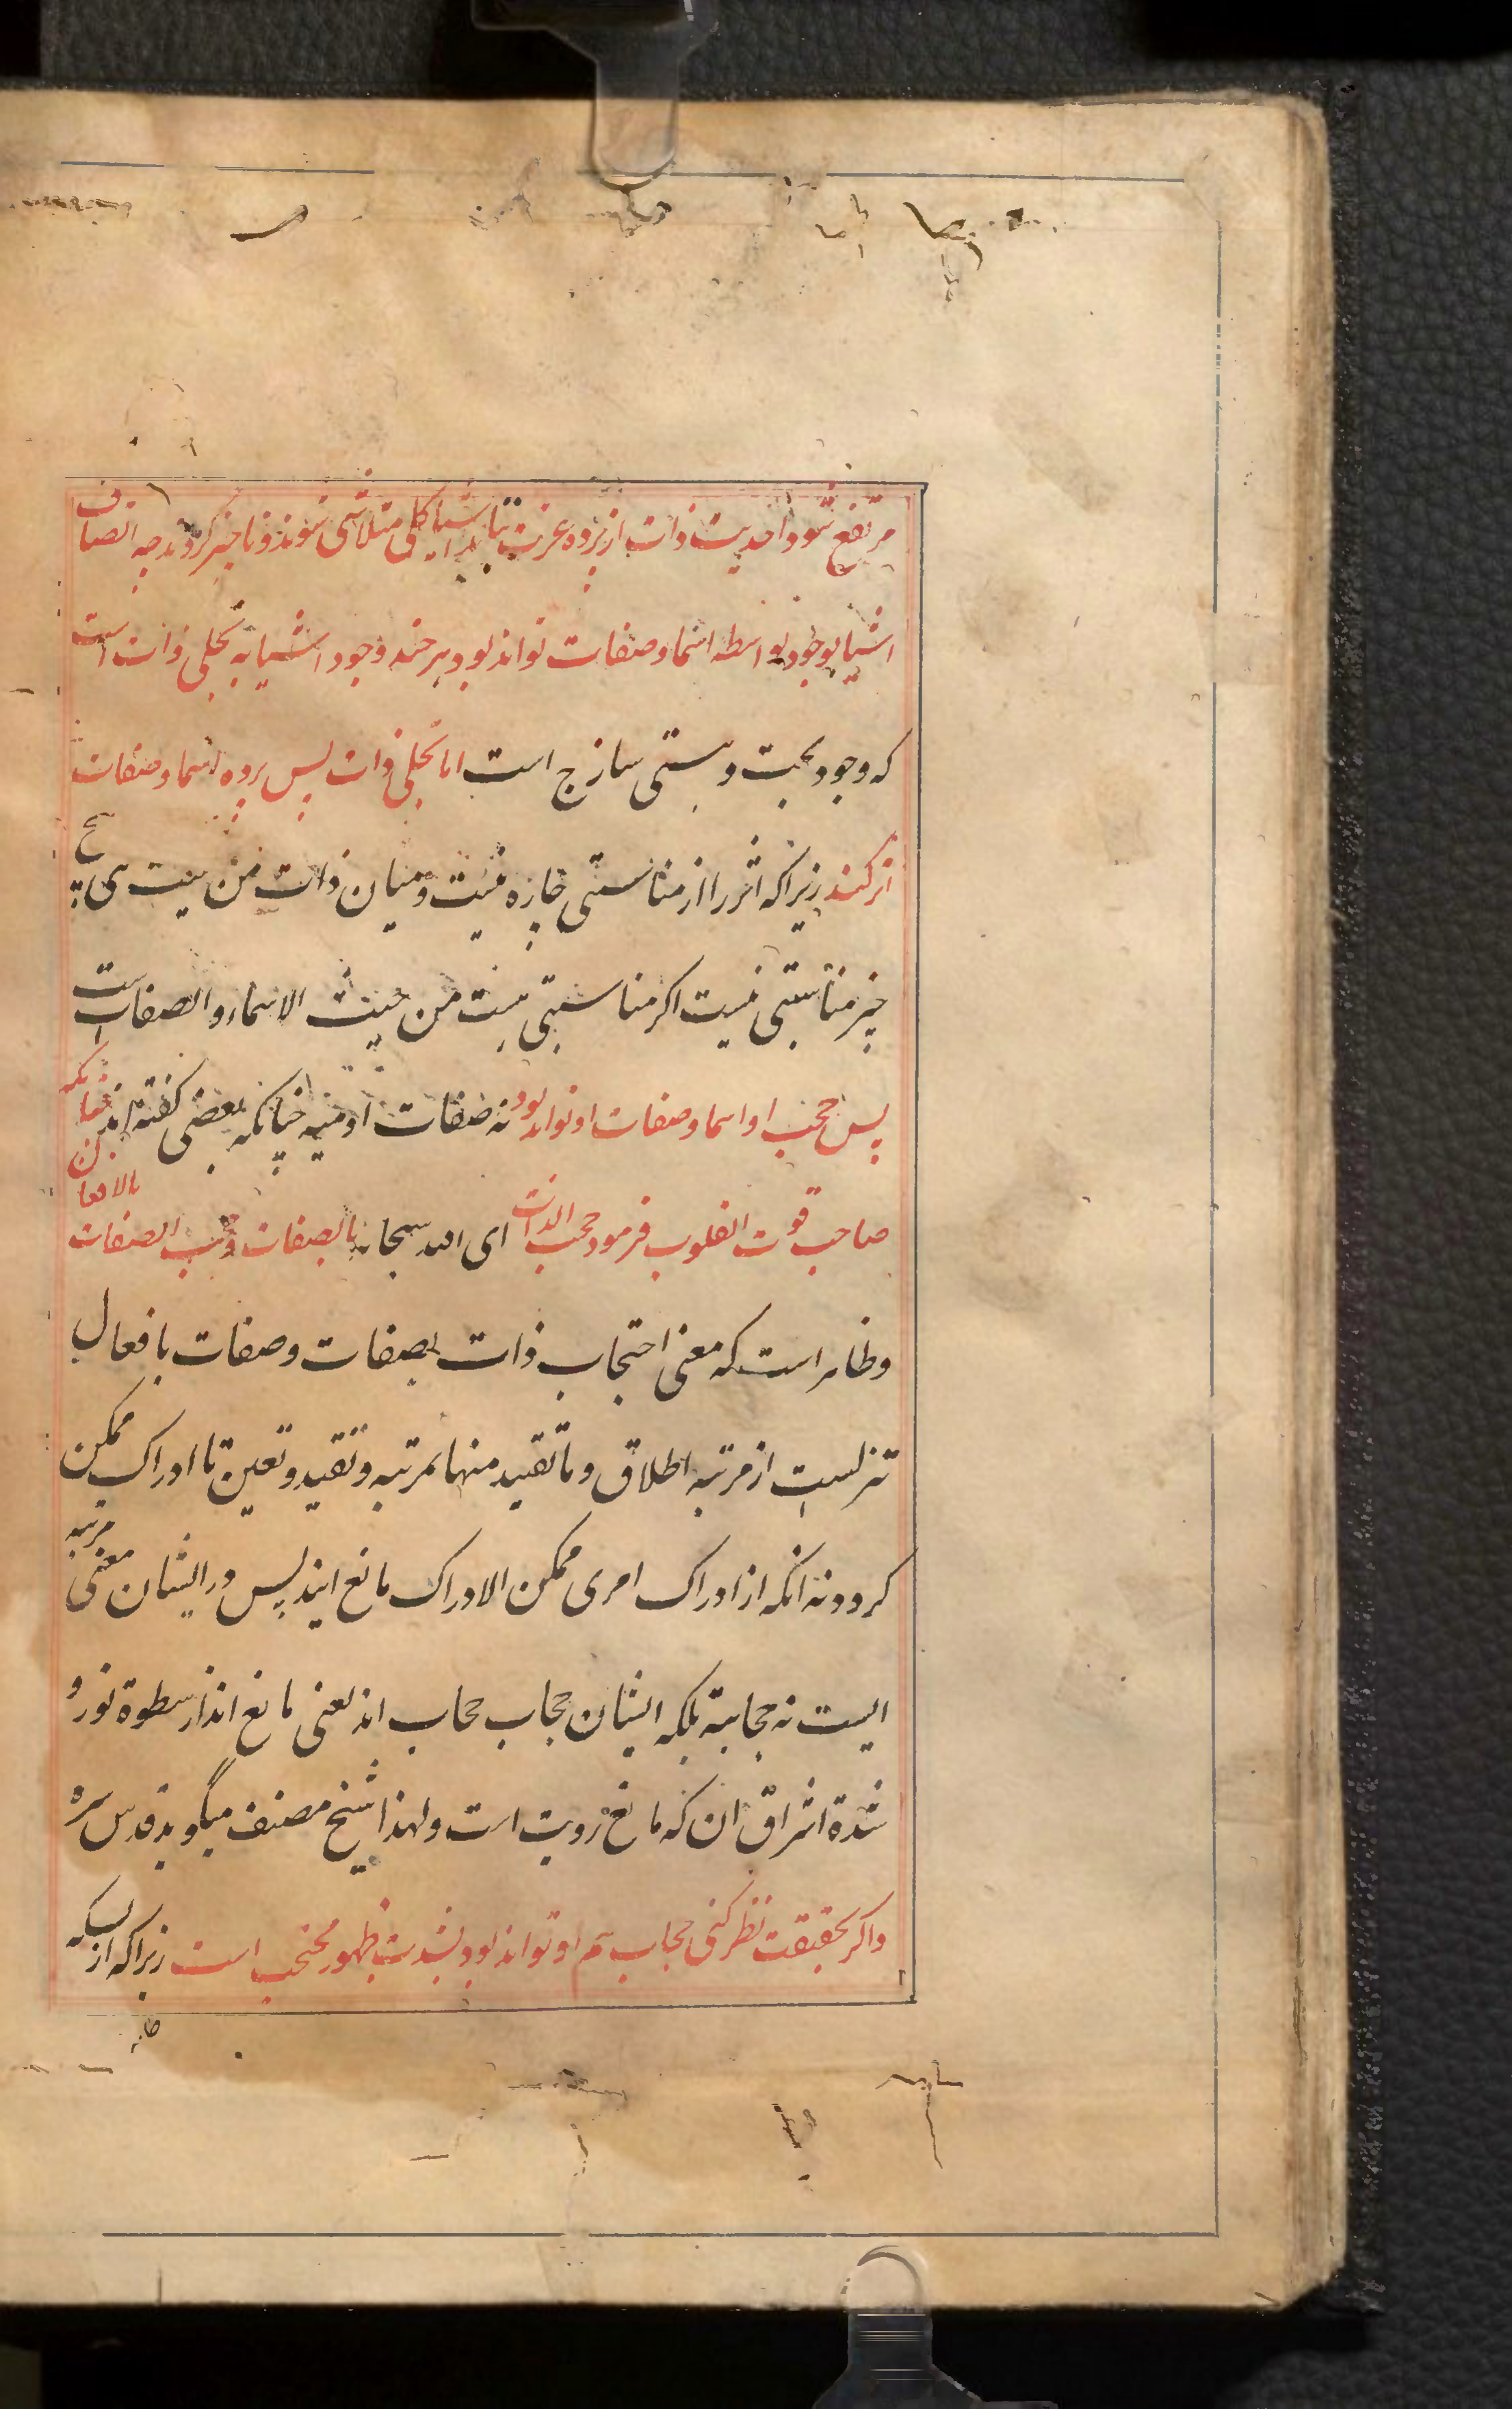 مرتفع شود و احدیت ذات از پرده عزت بتابد اشیا کلی متلاشی شوند و ناچیز کردند چه اتصاف
اشیا بوجود بواسطه اسما و صفات تواند بود هر چند وجود اشیا به تجلی ذات است
که وجود بحت و هستی سازج است اما تجلی ذات پس پرده اسما و صفات
اثر کند زیرا که اثر را از مناسبتی چاره نیست و میان ذات من حیث هی و هیچ
چیز مناسبتی نیست اکر مناسبتی هست من حیث الاسماء و الصفات است
پس حجب او اسما و صفات او تواند بود نه صفات ادمیه چنانکه بعضی کفته اند چنانکه
صاحب قوت القلوب فرمود حجب الذات ای الله سبحانه بالصفات و حجب الصفات بالافعال
و ظاهر است که معنی احتجاب ذات بصفات و صفات بافعال
تنزلست از مرتبه اطلاق و ما تقید منها بمرتبه و تقید و تعین تا ادراک ممکن
کردد نه انکه از ادراک امری ممکن الادراک مانع ایند پس در ایشان معنی مرتبه
ایست نه حجابیة بلکه ایشان حجاب حجاب اند یعنی مانع اند از سطوة نور و
شدة اشراق ان که مانع رویت است و لهذا شیخ مصنف میگوید قدس سره
و اکر بحقیقت نظر کنی حجاب هم او تواند بود بشدت ظهور محتجب است زیرا که از بسکه